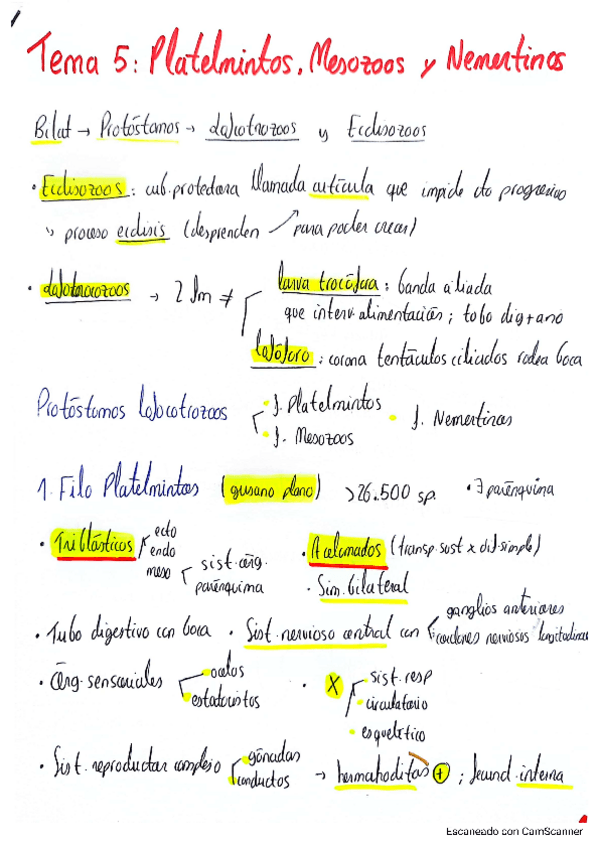 Tema 5: Platelmintos, Mesozoos y Nemertinos
Bilat → Protóstomos → Lofocotrozoos y Ecdisozoos
• Ecdisozoos: cub. protectora llamada cutícula que impide cto progresivo
↳ proceso ecdisis (desprenden ↗ para poder crecer)
• Lofotrocozoos → 2 fm ≠
larva trocófora: banda ciliada
que interv. alimentación; tubo dig + ano
lofóforo: corona tentáculos ciliados rodea boca
Protóstomos lofocotrozoos
• f. Platelmintos
• f. Mesozoos
• f. Nemertinos
1. Filo Platelmintos (gusano plano) >26.500 sp. • ∃ parénquima
• Triblásticos
ecto
endo
meso
sist. órg.
parénquima
• Acelomados (transp. sust x dif. simple)
• Sim. bilateral
• Tubo digestivo con boca
• Sist. nervioso central con
ganglios anteriores
cordones nerviosos longitudinales
• Órg. sensoriales
ocelos
estatocistos
• X
sist. resp
circulatorio
esquelético
• Sist. reproductor complejo
gónadas
conductos
→ hermafroditas +; fecund. interna
Escaneado con CamScanner